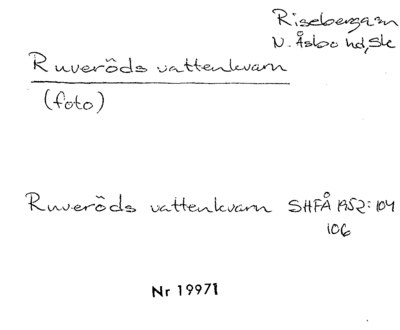 Riseberga sn
N. Åsbo hd, Sk
Ruveröds vattenkvarn
(foto)
Ruveröds vattenkvarn SHFÅ 1952: 104
106
Nr 19971